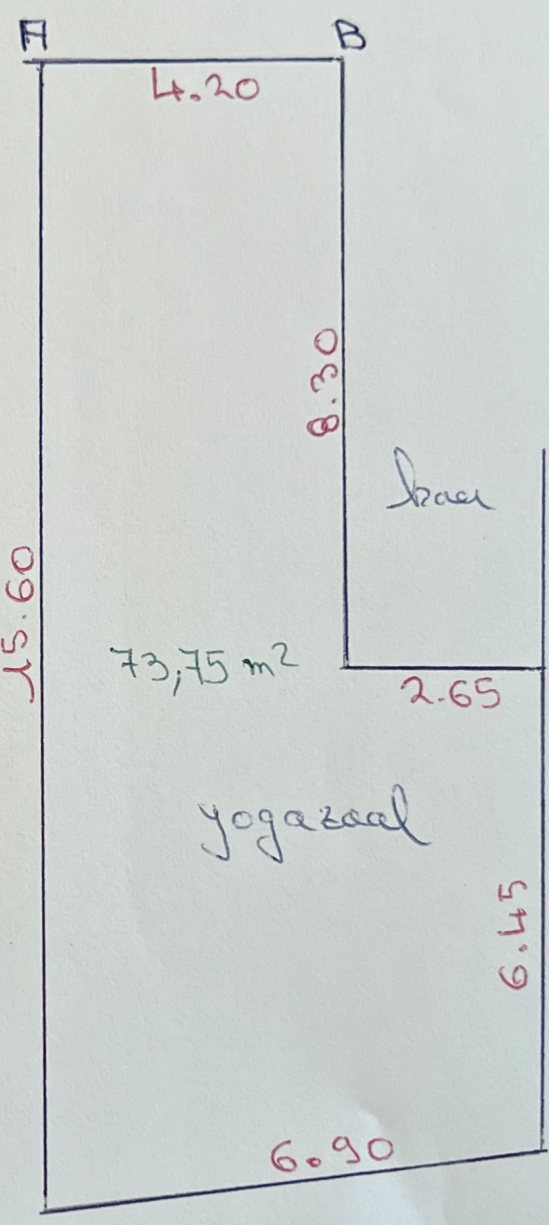 A B
4.20
8.30
15.60
73,75 m²
2.65
yogazaal
6.45
6.90